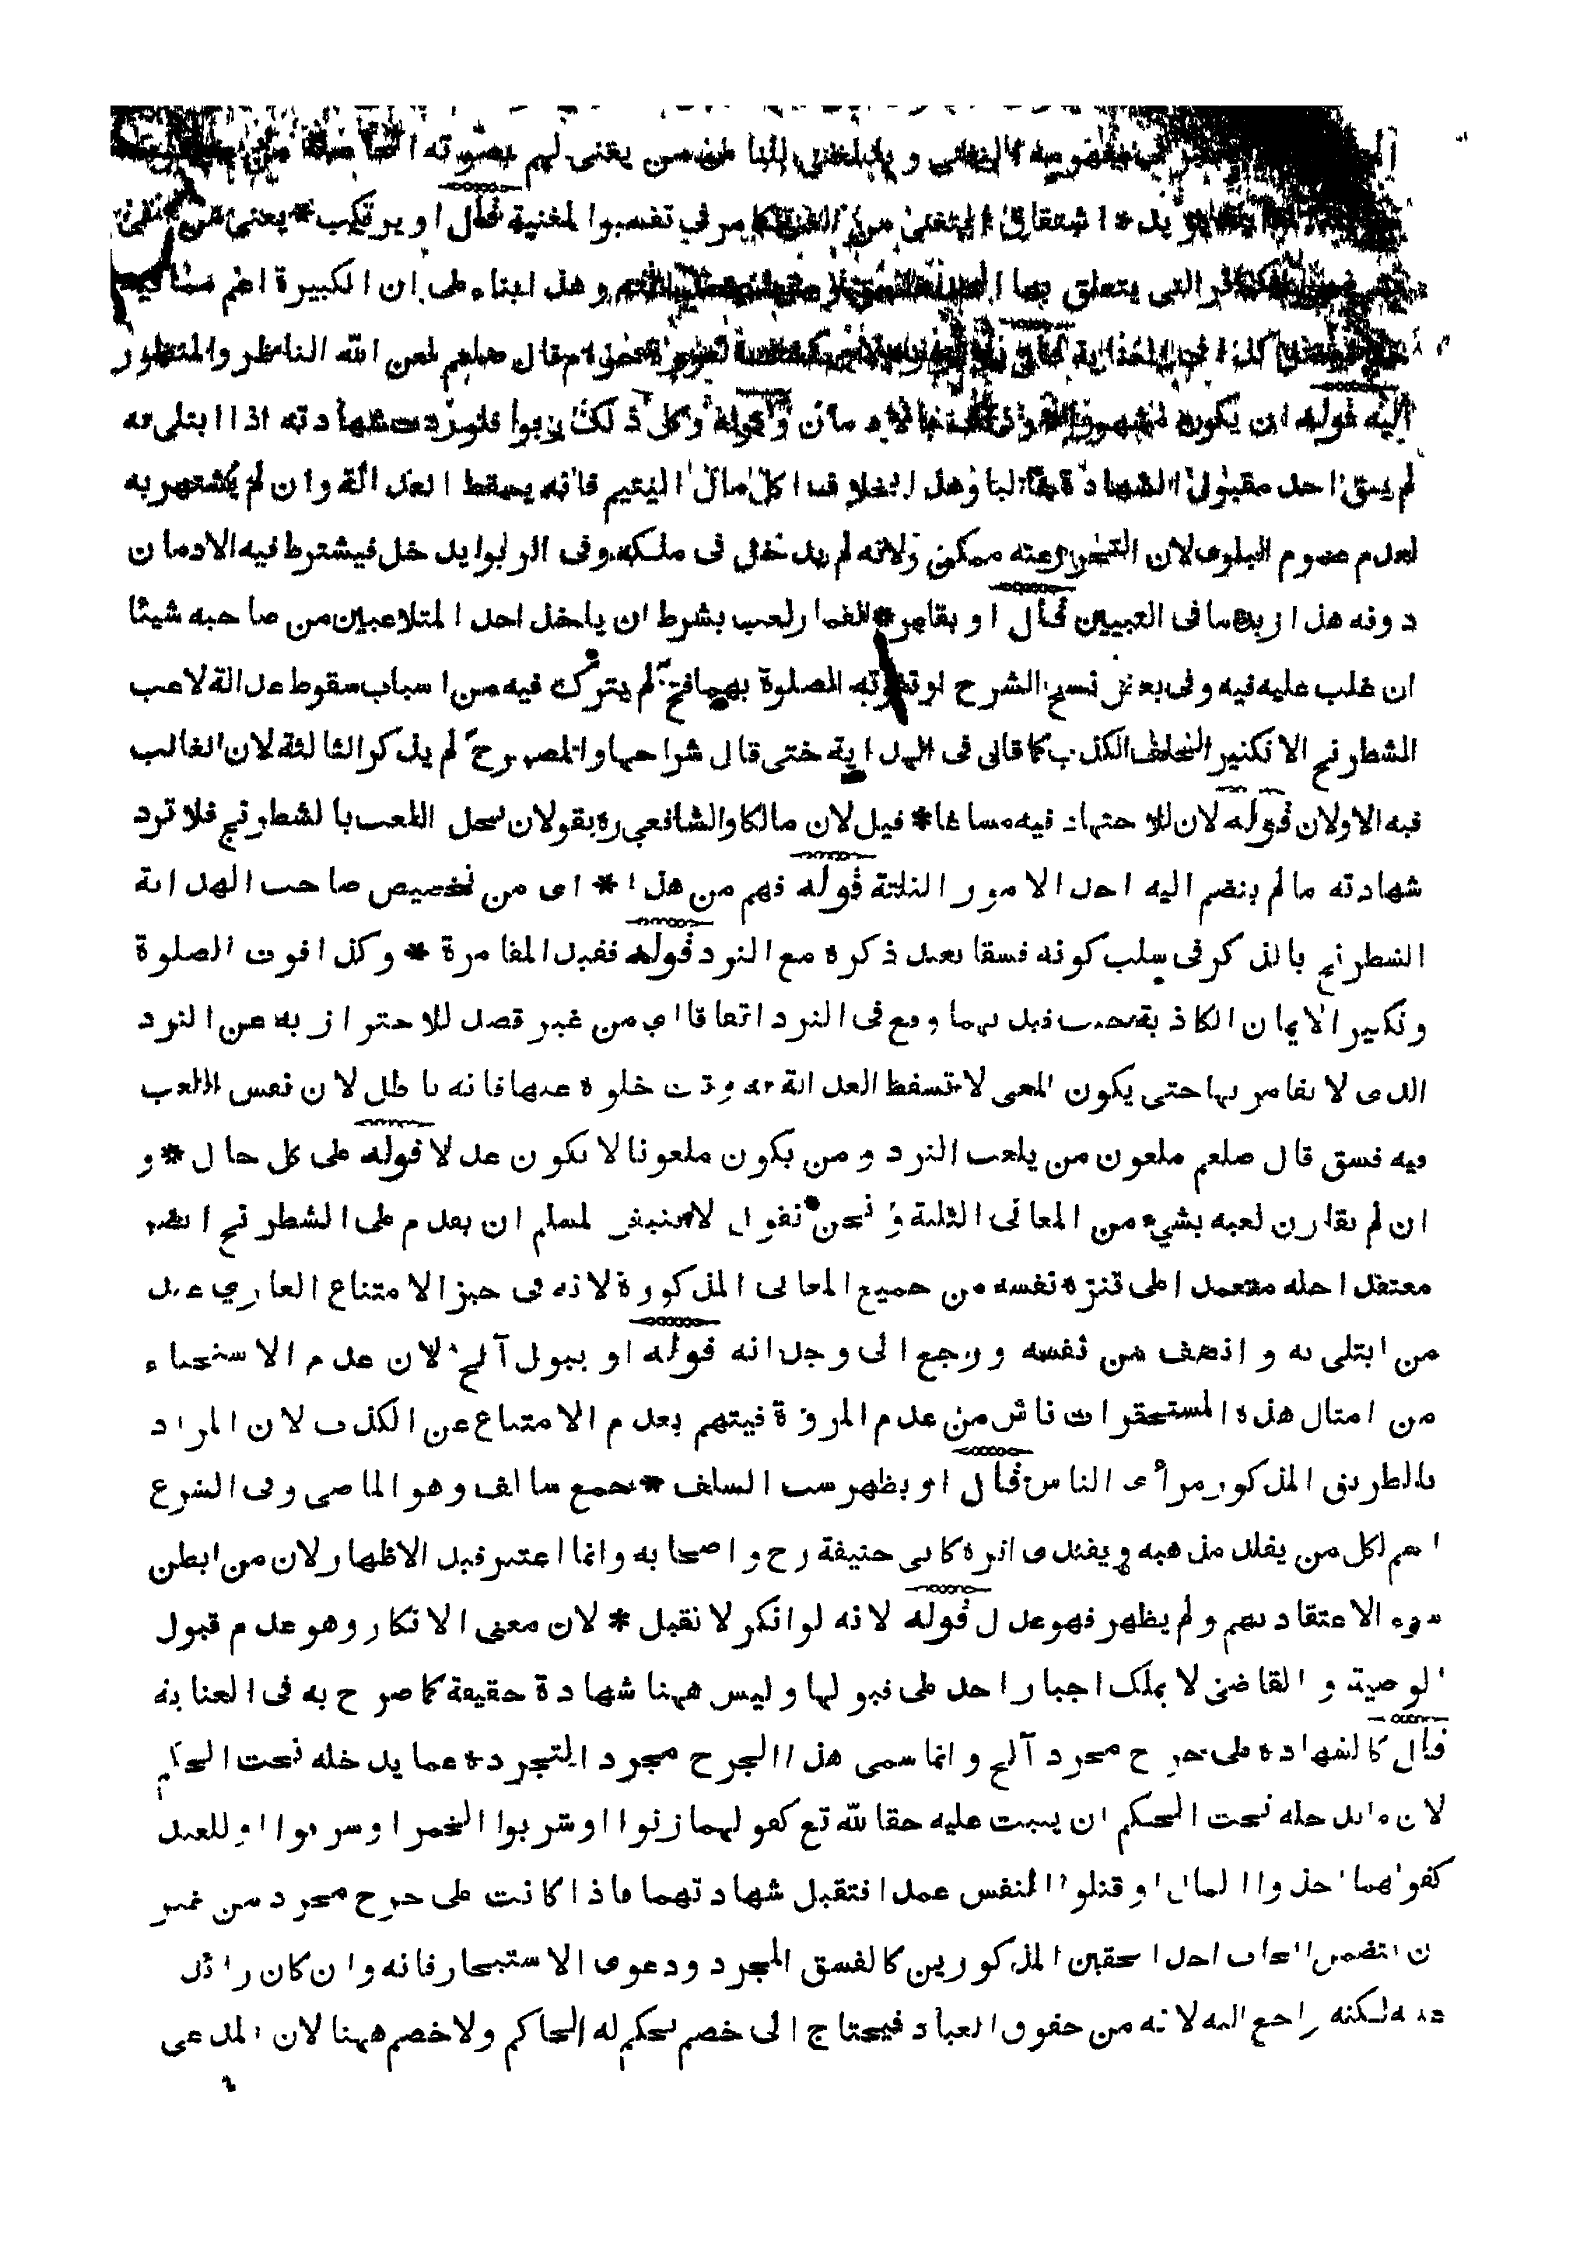 من يغنى لهم بصوته
اشتقاق المتغنى من الغنا كما مر في تفسير المغنية قال او يرتكب * يعنى من
التى يتعلق بها وهذا بناء على ان الكبيرة اعم مما فيه
قال صلعم لعن الله الناظر والمنظور
اليه قوله ان يكون مشهورا الادمان وقوله وكل ذلك ربوا فلو ردت شهادته اذا ابتلى به
لم يبق احد مقبول الشهادة غالبا وهذا بخلاف اكل مال اليتيم فانه يسقط العدالة وان لم يشتهر به
لعدم عموم البلوى لان التحرز عنه ممكن ولانه لم يدخل فى ملكه وفى الربوا يدخل فيشترط فيه الادمان
دونه هذا زبدة ما فى التبيين قال او يقامر * القمار لعب بشرط ان ياخذ احد المتلاعبين من صاحبه شيئا
ان غلب عليه فيه وفى بعض نسخ الشرح او تفوته الصلوة بهما فح لم يترك فيه من اسباب سقوط عدالة لاعب
الشطرنج الا تكثير الحلف الكذب كما قال فى الهداية حتى قال شراحها والمصرح لم يذكر الثالثة لان الغالب
فيه الاولان قوله لان للاجتهاد فيه مساغا * قيل لان مالكا والشافعي ره يقولان بحل اللعب بالشطرنج فلا ترد
شهادته ما لم ينضم اليه احد الامور الثلثة قوله فهم من هذا * اى من تخصيص صاحب الهداية
الشطرنج بالذكر فى سلب كونه فسقا بعد ذكره مع النرد قوله فقيد المقامرة * وكذا فوت الصلوة
وتكثير الايمان الكاذبة بحسب قيد بهما وقع فى النرد اتفاقا اي من غير قصد للاحتراز به عن النرد
الذى لا يقامر بها حتى يكون المعنى لا تسقط العدالة به وقت خلوه عنها فانه باطل لان نفس اللعب
فيه فسق قال صلعم ملعون من يلعب النرد ومن يكون ملعونا لا يكون عدلا قوله على كل حال * و
ان لم يقارن لعبه بشيء من المعانى الثلثة ونحن نقول لا ينبغى لمسلم ان يقدم على الشطرنج ايضا
معتقدا حله معتمدا على تنزه نفسه من جميع المعانى المذكورة لانه فى حيز الامتناع العاري عند
من ابتلى به وانصف من نفسه ورجع الى وجدانه قوله او يبول آلخ لان عدم الاستحياء
من امثال هذه المستحقرات ناش من عدم المروة فيتهم بعدم الامتناع عن الكذب لان المراد
بالطريق المذكور مرأى الناس قال او يظهر سب السلف * جمع سالف وهو الماضى وفى الشرع
اسم لكل من يقلد مذهبه ويقتدى اثره كابى حنيفة رح واصحابه وانما اعتبر قيد الاظهار لان من ابطن
سوء الاعتقاد بهم ولم يظهر فهو عدل قوله لانه لو انكر لا تقبل * لان معنى الانكار وهو عدم قبول
الوصية والقاضى لا يملك اجبار احد على قبولها وليس ههنا شهادة حقيقة كما صرح به فى العناية
قال كالشهادة على جرح مجرد آلخ وانما سمى هذا الجرح مجردا لتجرده عما يدخله تحت الحكم
لان ما يدخله تحت الحكم ان يثبت عليه حقا لله تع كقولهما زنوا او شربوا الخمر او سرقوا او للعبد
كقولهما اخذوا المال او قتلوا النفس عمدا فتقبل شهادتهما فاذا كانت على جرح مجرد من غير
ان تتضمن ايجاب احد الحقين المذكورين كالفسق المجرد ودعوى الاستيجار فانه وان كان زائدا
عنه لكنه راجع اليه لانه من حقوق العباد فيحتاج الى خصم يحكم له الحاكم ولا خصم ههنا لان المدعى